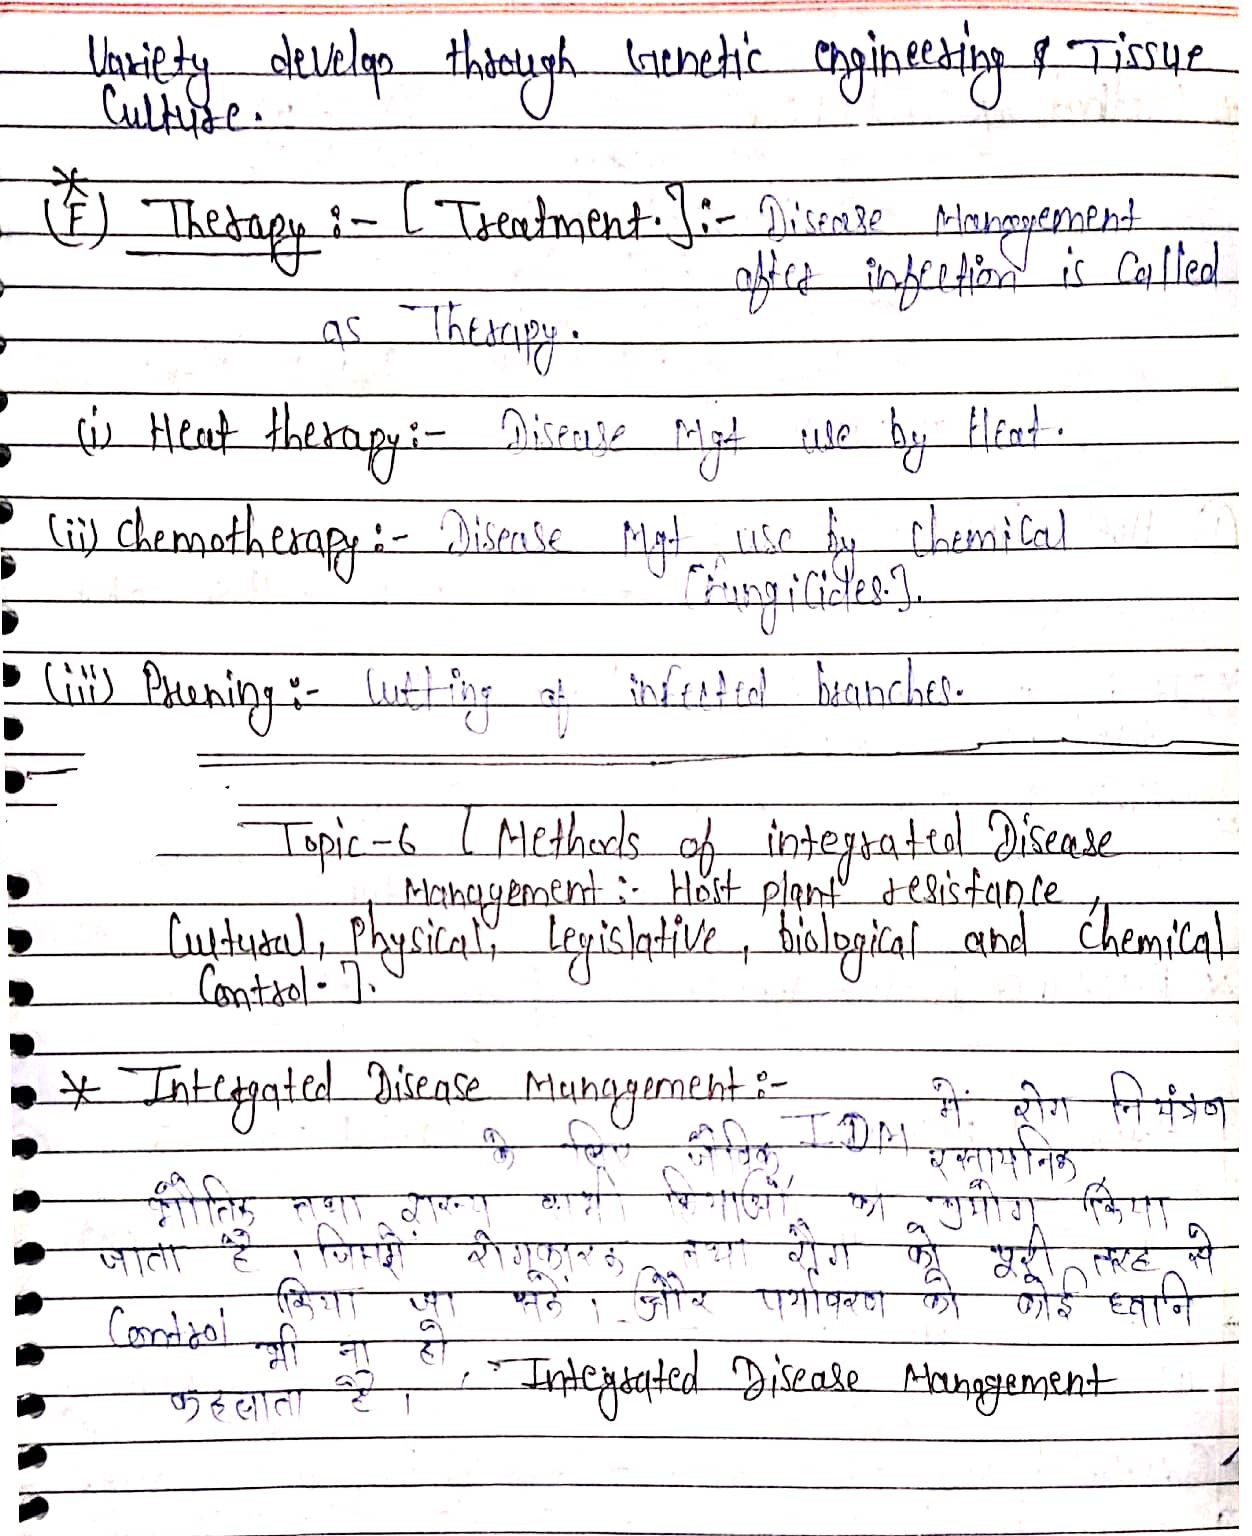 Variety develop through Genetic engineering & Tissue
Culture.
(F) Therapy :- [Treatment.] :- Disease Management
after infection is Called
as Therapy.
(i) Heat therapy :- Disease Mgt use by Heat.
(ii) Chemotherapy :- Disease Mgt use by Chemical
[Fungicides.].
(iii) Pruning :- Cutting of infected branches.
Topic-6 [Methods of integrated Disease
Management :- Host plant resistance,
Cultural, Physical, Legislative, biological and Chemical
Control-].
* Intergated Disease Management :-
IDM में रोग नियंत्रण
के लिए जैविक, रसायनिक
भौतिक तथा शस्य क्रियाओं का प्रयोग किया
जाता है। जिसमें रोगकारक तथा रोग को पूरी तरह से
Control किया जा सके। और पर्यावरण को कोई हानि
भी ना हो, Integrated Disease Management
कहलाता है।